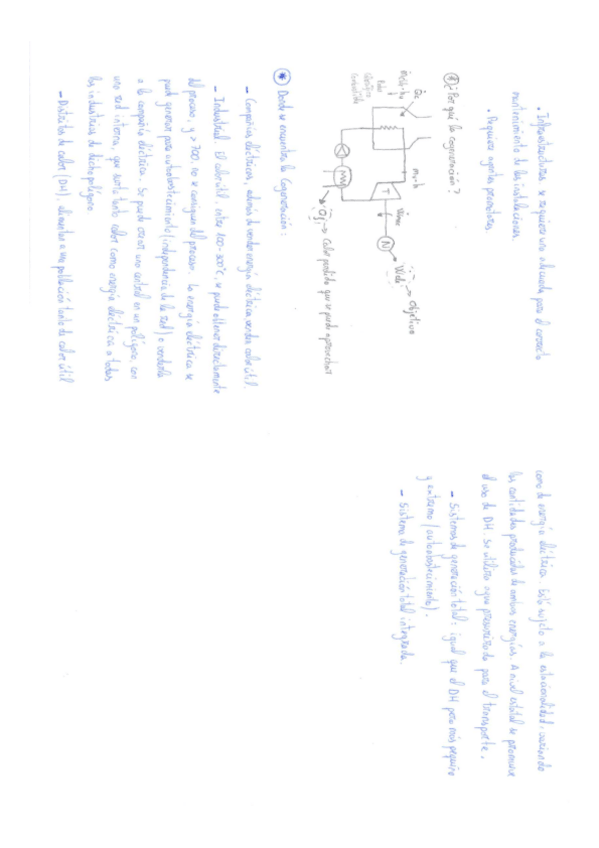 • Infraestructuras: se requiere una adecuada para el correcto
mantenimiento de las instalaciones.
• Requiere agentes promotores.
¿Por qué la cogeneración?
Qc
ṁc·h
Wmec
Wele → objetivo
N
T
Qf → Calor perdido que se puede aprovechar
Donde se encuentra la Cogeneración:
- Compañías eléctricas, además de vender energía eléctrica venden calor útil.
- Industrial. El calor útil, entre 100-300°C, se puede obtener directamente
del proceso, y >300, no se consiguen del proceso. La energía eléctrica se
puede generar para autoabastecimiento (independencia de la red) o venderla
a la compañía eléctrica. Se puede crear una central en un polígono, con
una red interna, que surta tanto calor como energía eléctrica a todas
las industrias de dicho polígono
- Distritos de calor (DH), alimentan a una población tanto de calor útil
como de energía eléctrica. Está sujeto a la estacionalidad, variando
las cantidades producidas de ambas energías. A nivel estatal se promueve
el uso de DH. Se utiliza agua presurizada para el transporte.
- Sistemas de generación total: igual que el DH pero más pequeño
y extremo (autoabastecimiento).
- Sistema de generación total integrada.